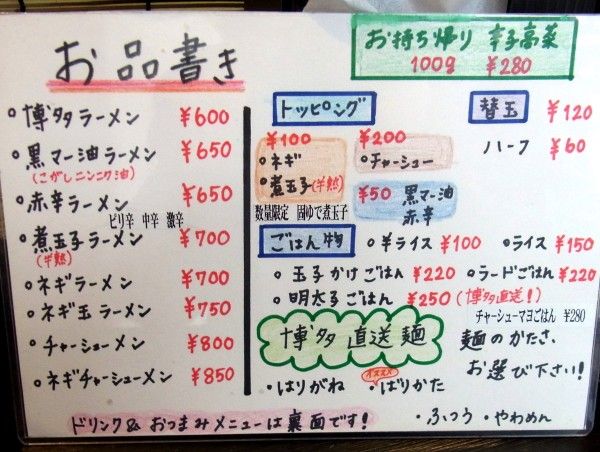 お品書き
お持ち帰り 辛子高菜
100g ¥280
◦博多ラーメン ¥600
◦黒マー油ラーメン ¥650
(こがしニンニク油)
◦赤辛ラーメン ¥650
ピリ辛 中辛 激辛
◦煮玉子ラーメン ¥700
(半熟)
◦ネギラーメン ¥700
◦ネギ玉ラーメン ¥750
◦チャーシューメン ¥800
◦ネギチャーシューメン ¥850
トッピング
¥100
◦ネギ
◦煮玉子(半熟)
数量限定 固ゆで煮玉子
¥200
◦チャーシュー
¥50 黒マー油
赤辛
替玉 ¥120
ハーフ ¥60
ごはん物
◦半ライス ¥100
◦ライス ¥150
◦玉子かけごはん ¥220
◦ラードごはん ¥220
◦明太子ごはん ¥250(博多直送!)
チャーシューマヨごはん ¥280
博多直送麺
麺のかたさ、
お選び下さい!
・はりがね
オススメ
・ばりかた
・ふつう
・やわめん
ドリンク& おつまみメニューは裏面です!